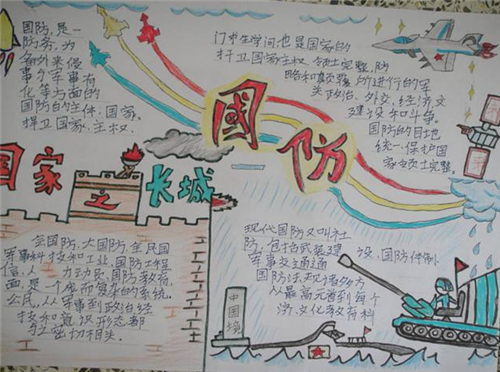 国防,是一
防务,为
备外来侵
事外军事有
化等方面的
国防的主体,国家。
捍卫国家,主权
门中生学问也是国家的
捍卫国家主权、领土完整,防
略和颠覆,所进行的军
类政治、外交、经济文
建设和斗争。
国防的目地
统一,保护国
家领土完整。
國防
国家之长城
全国防,大国防,全民国
军事科技和工业,国防工程
信,人,力动员,国防教育,
面,是个庞而复杂的系统。
公民,从军事到政治经
技和意识形态都
与之密切相关。
现代国防又叫社
防,包括武装建设,国防体制
军事交通通
国防法规
从最高元首到每个
济,文化教育科
中国境